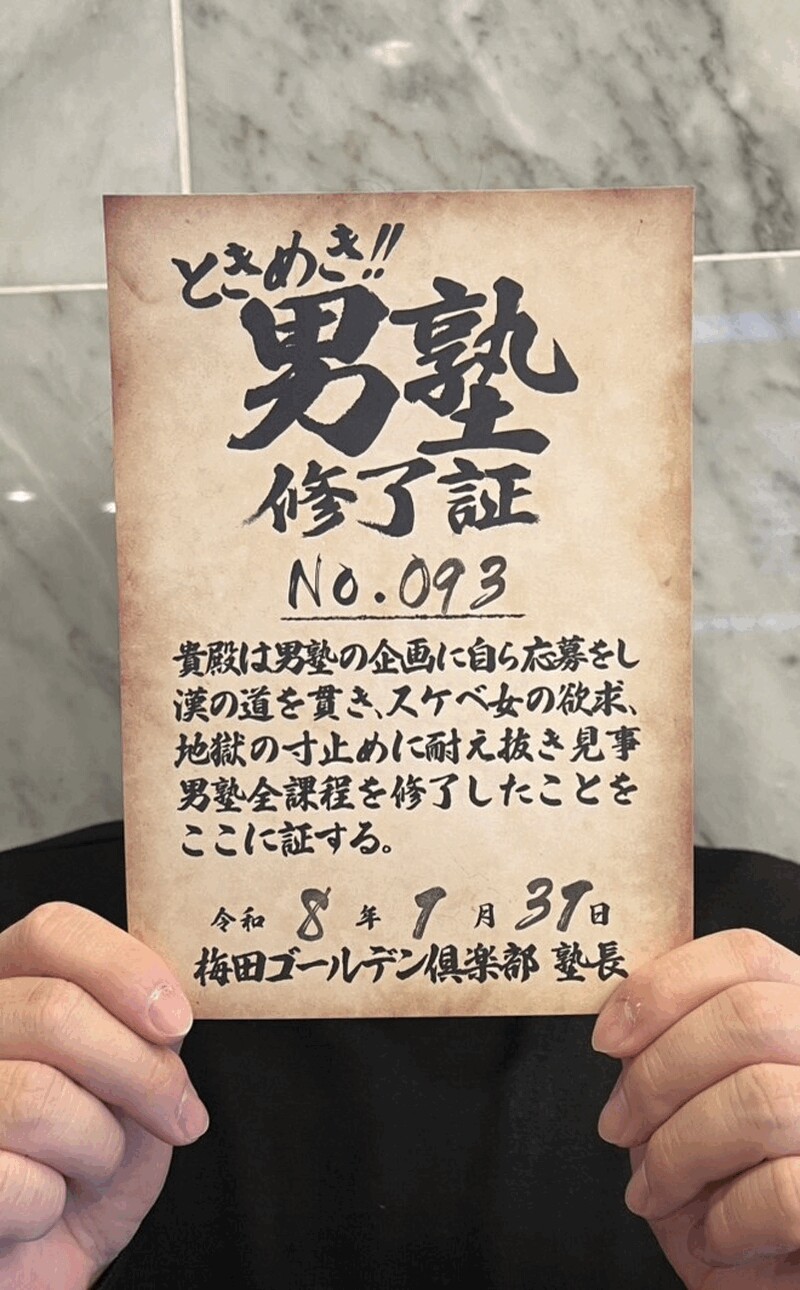 ときめき!!
男塾
修了証
No.093
貴殿は男塾の企画に自ら応募をし
漢の道を貫き、スケベ女の欲求、
地獄の寸止めに耐え抜き見事
男塾全課程を修了したことを
ここに証する。
令和 8 年 1 月 31 日
梅田ゴールデン倶楽部 塾長